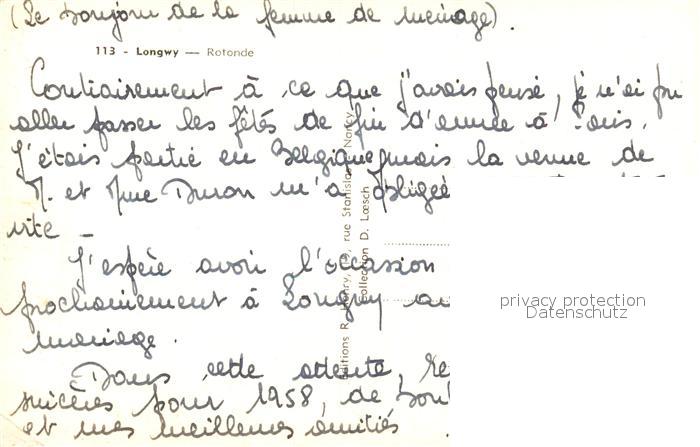 (Le bonjour de la femme de ménage).
113 - Longwy — Rotonde
Contrairement à ce que j'avais pensé, je n'ai pu
aller passer les fêtes de fin d'année à Paris.
J'étais partie en Belgique mais la venue de
M. et Mme Duron m'a obligée
vite –
J'espère avoir l'occasion
prochainement à Longwy au
mariage.
Dans cette attente,
sincères pour 1958, de
et mes meilleures amitiés
Editions R. Henry, rue Stanislas, Nancy
Collection D. Lœsch
privacy protection
Datenschutz